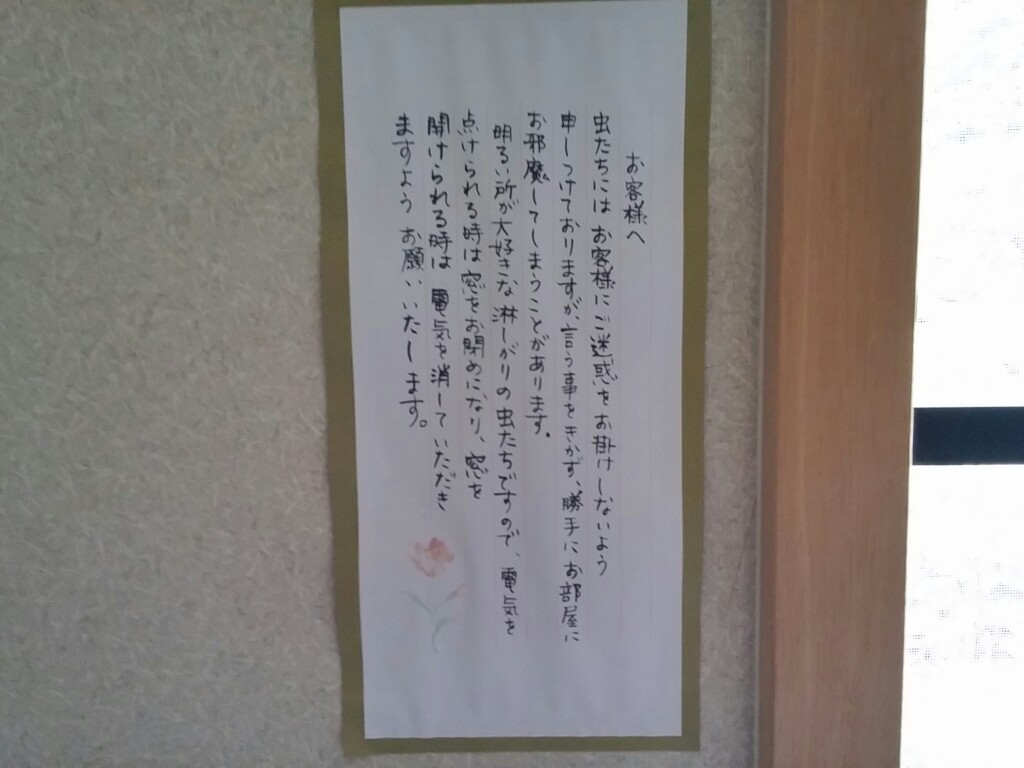 お客様へ
虫たちには お客様にご迷惑をお掛けしないよう
申しつけておりますが、言う事をきかず、勝手にお部屋に
お邪魔してしまうことがあります。
明るい所が大好きな 淋しがりの虫たちですので、電気を
点けられる時は窓をお閉めになり、窓を
開けられる時は 電気を消していただき
ますよう お願いいたします。